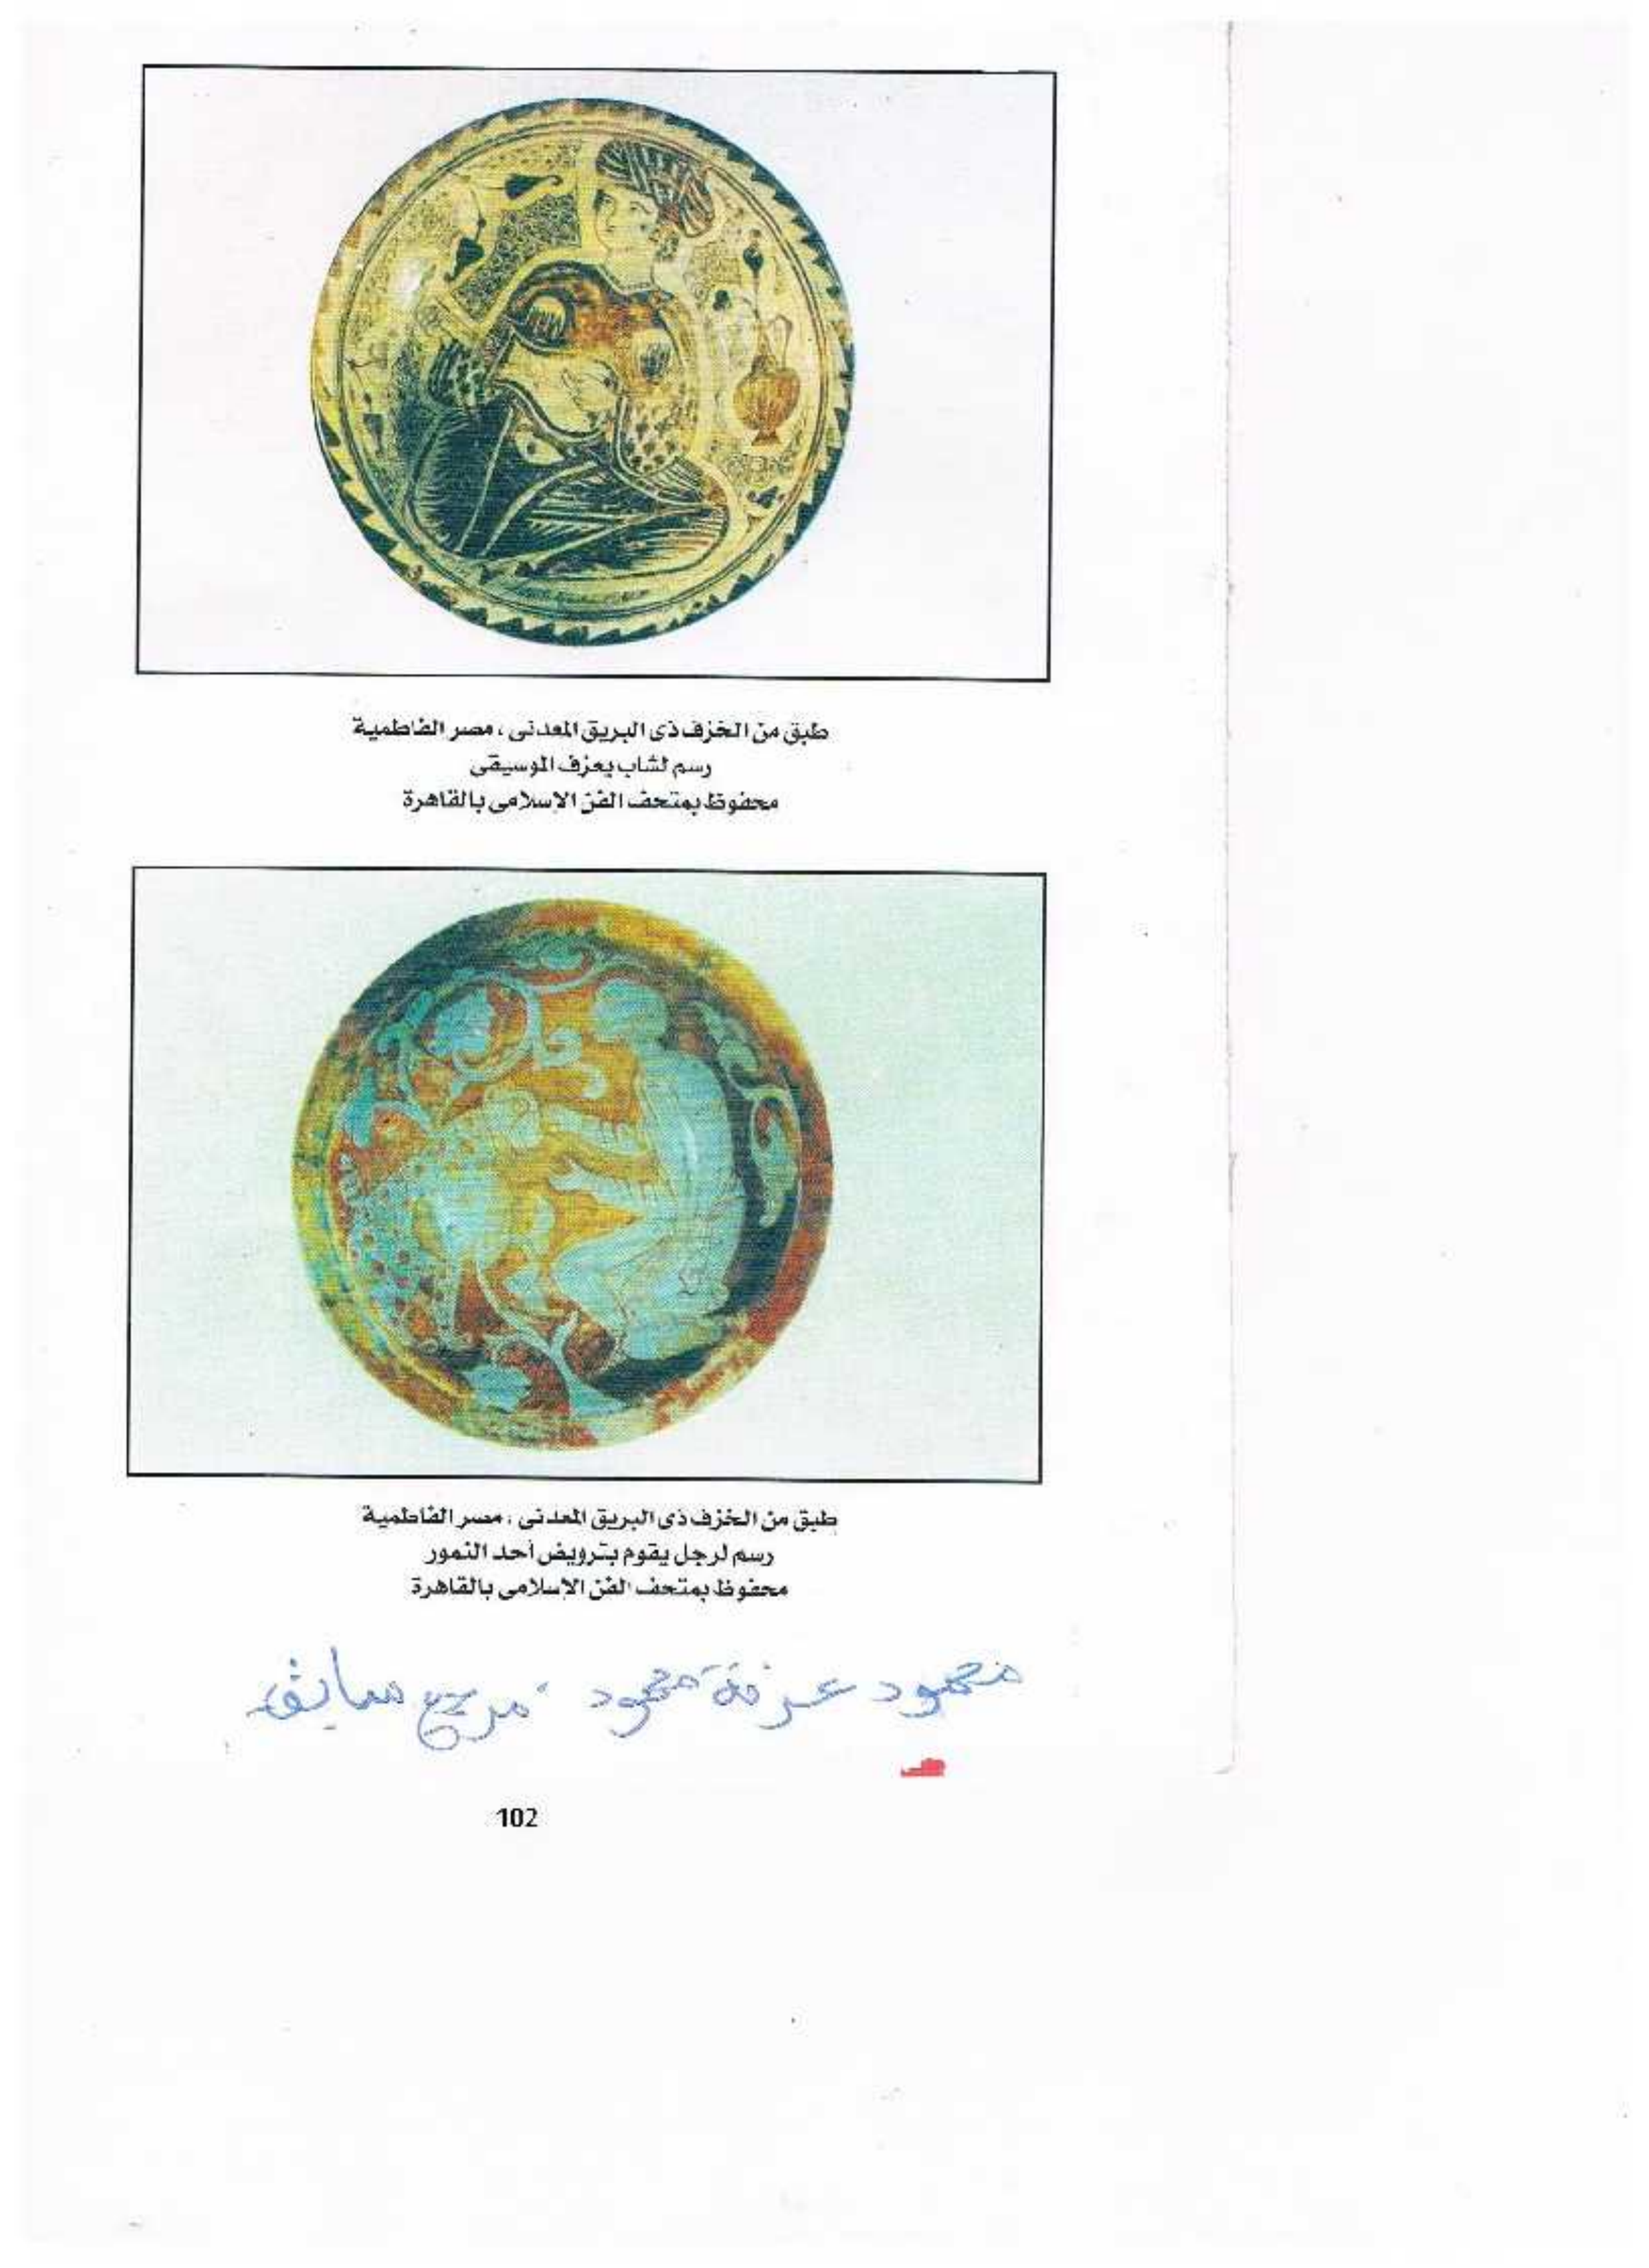 طبق من الخزف ذى البريق المعدنى ، مصر الفاطمية
رسم لشاب يعزف الموسيقى
محفوظ بمتحف الفن الإسلامى بالقاهرة
طبق من الخزف ذى البريق المعدنى ، مصر الفاطمية
رسم لرجل يقوم بترويض أحد النمور
محفوظ بمتحف الفن الإسلامى بالقاهرة
محمود عرفة محمود ، مرجع سابق
102